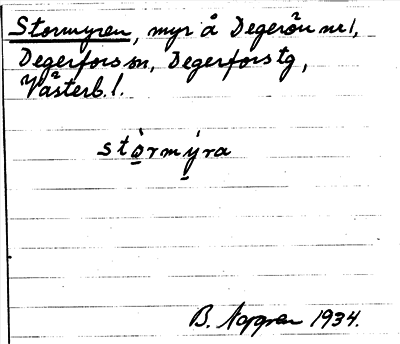 Stormyren, myr å Degerön nr 1,
Degerfors sn, Degerfors tg,
Västerb. l.
stò̱rmý̱ra
B. Norgren 1934.